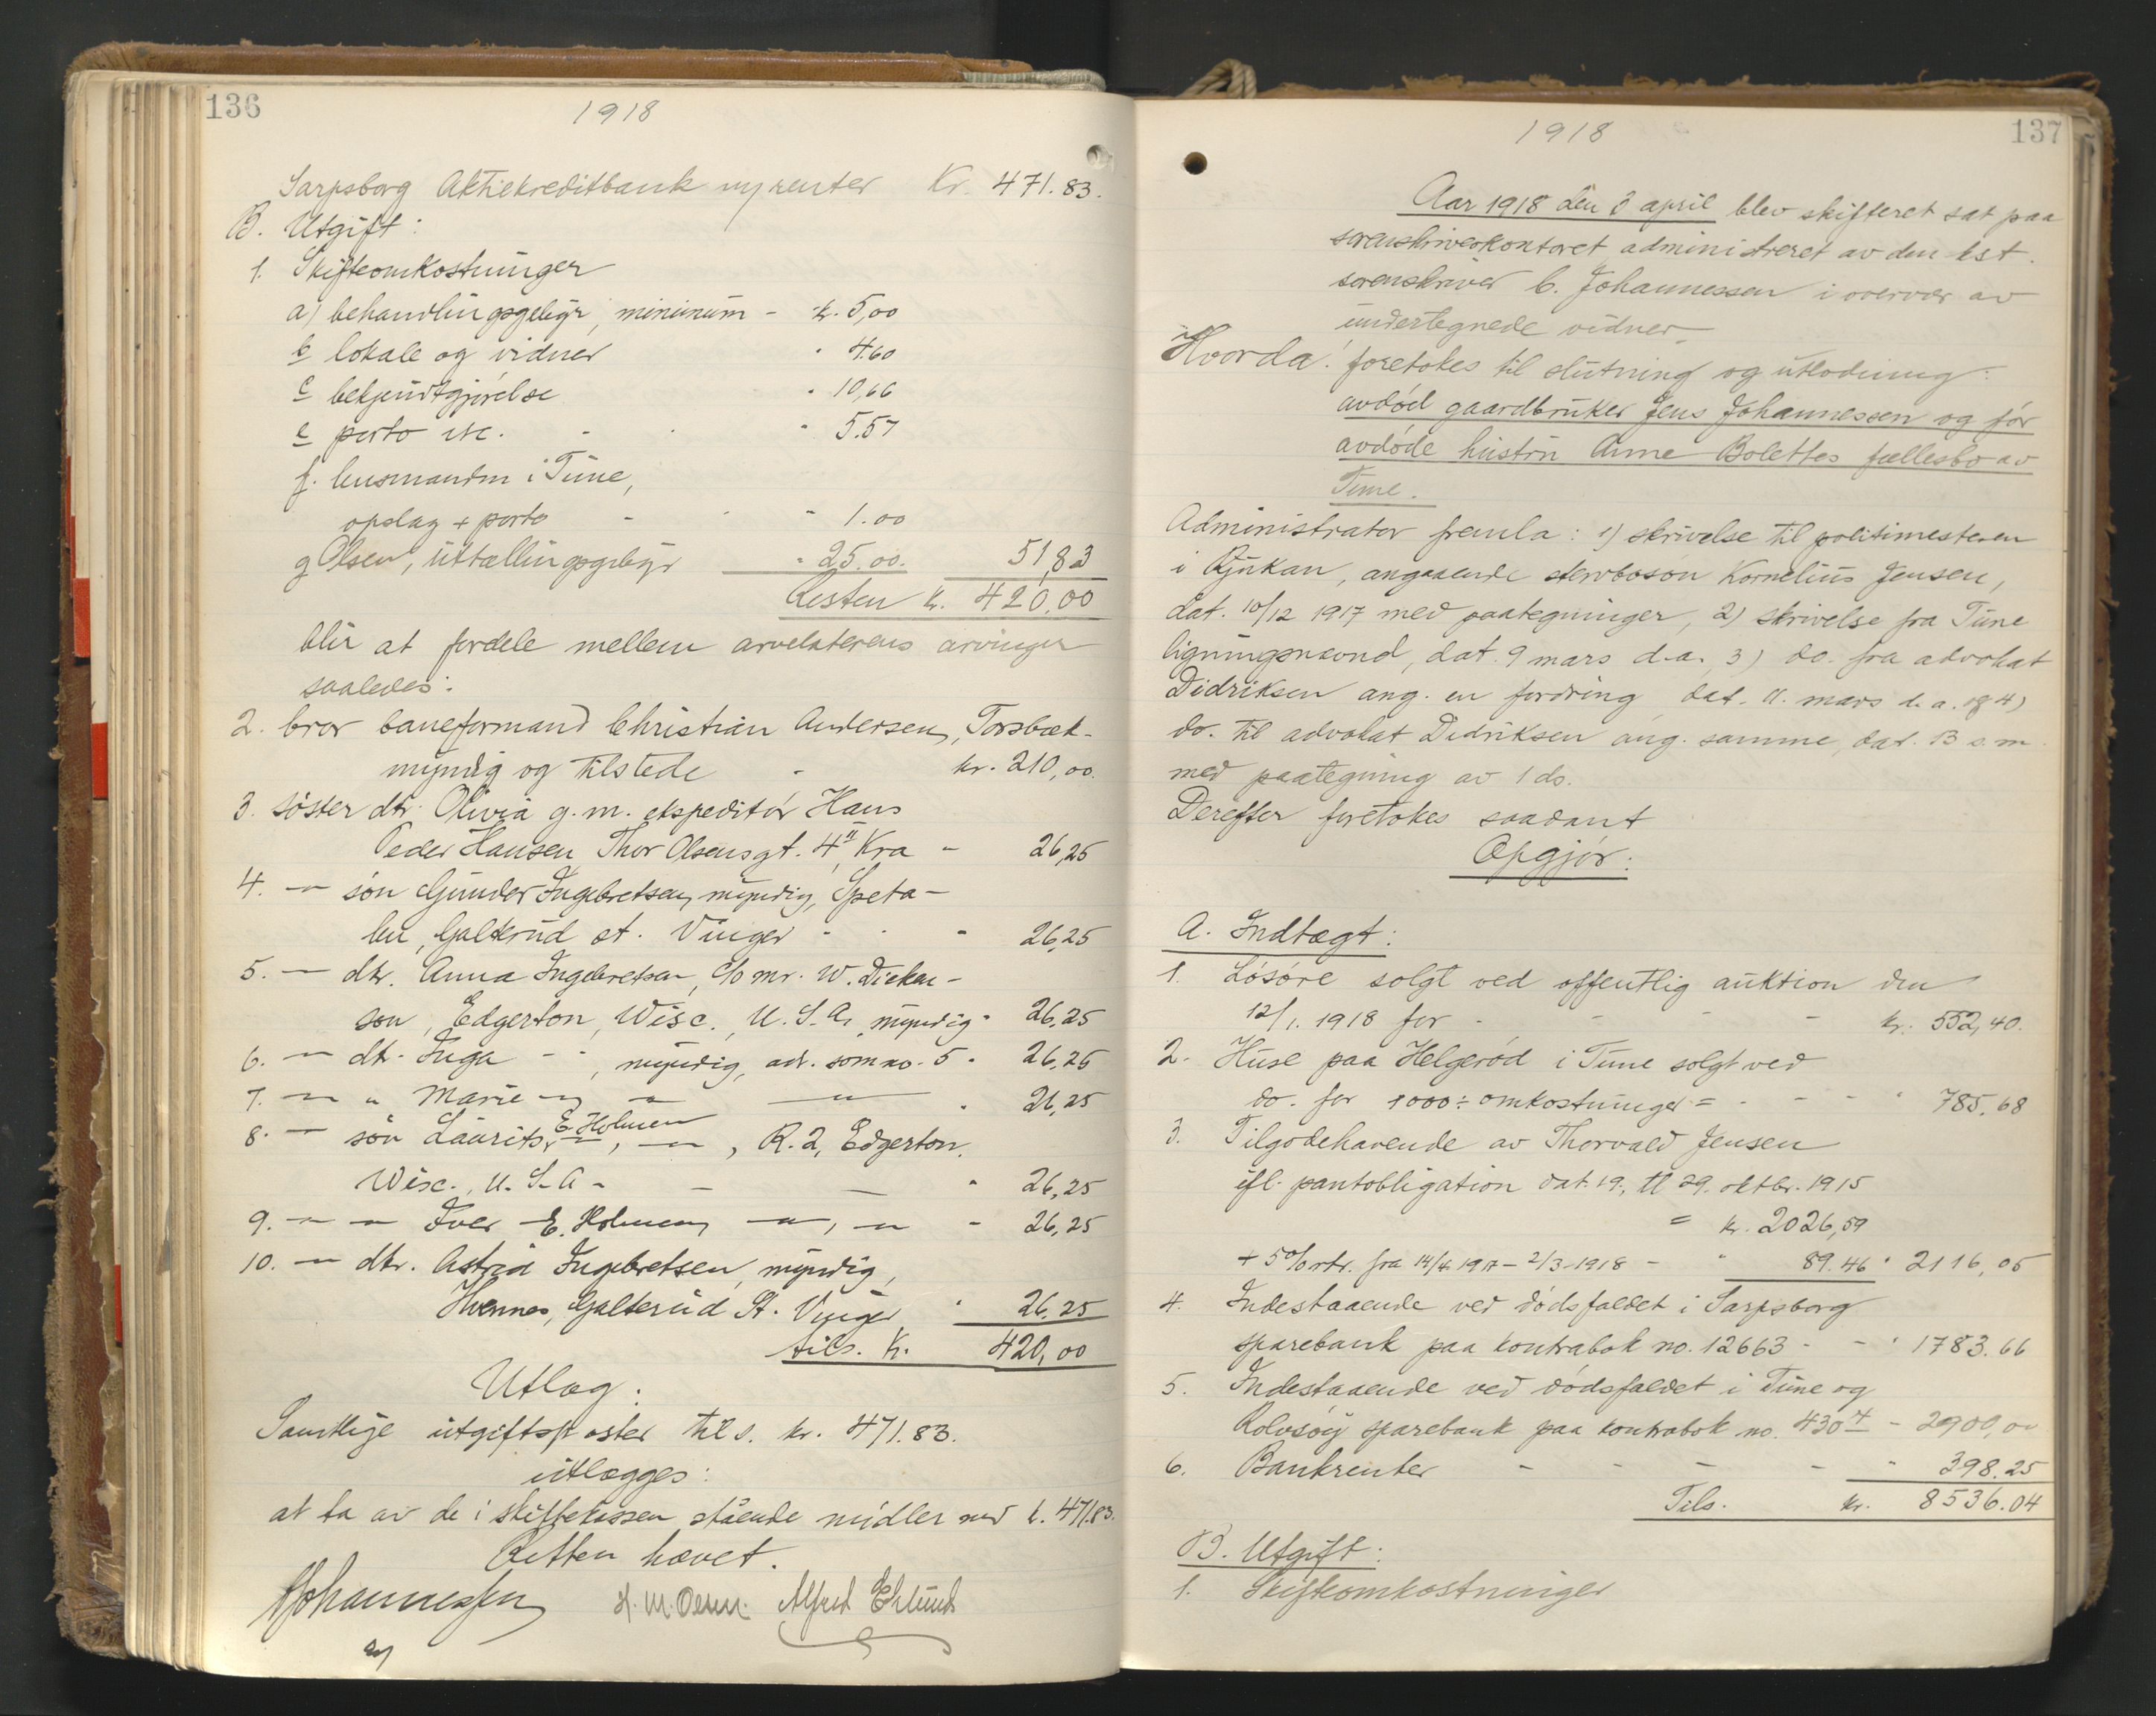 136
1918
Sarpsborg Aktiekreditbank m/renter Kr. 471.83.
B. Utgift:
1. Skifteomkostninger
a) behandlingsgebyr, minimum - k. 5,00
b lokale og vidner " 4.60
c bekjendtgjørelse " 10,66
e porto etc. - " 5.57
f. lensmanden i Tune,
opslag + porto - " 1.00
g Olsen, uttællingsgebyr " 25.00. 51,83
Resten k. 420,00
blir at fordele mellem arvelaterens arvinger
saaledes:
2. bror baneformand Christian Andersen, Torsbæk-
myndig og tilstede - kr. 210,00.
3. søster dtr. Olivia g.m. ekspeditør Hans
Peder Hansen, Thor Olsensgt. 4II Kra - 26,25
4. -"- søn Gunder Ingebretsen, myndig, Speta-
len, Galterud st. Vinger - - " 26,25
5. -"- dtr. Anna Ingebretsen, c/o mr. W. Dicken-
son, Edgerton, Wisc., U.S.A. myndig " 26,25
6. -"- dtr. Inga - " , myndig, adr. som no. 5 " 26,25
7. -"- " Marie -"- -"- -"- " 26,25
8. -"- søn Laurits E. Holmen -"-, -"-, R. 2, Edgerton.
Wisc., U.S.A - - - " 26,25
9. -"- -"- Iver E. Holmen, -"-, -"- " 26,25
10. -"- dtr. Astrid Ingebretsen, myndig,
Galterud St. Vinger " 26,25
tils. k. 420,00
Utlæg:
Samtlige utgiftsposter tils. kr. 471.83.
utlægges:
at ta av de i skiftekassen stående midler med k. 471.83.
Retten hævet.
Johannessen H. M. Olsen. Alfred Eklund
137
1918
Aar 1918 den 3 april blev skifteret sat paa
sorenskriverkontoret administreret av den kst.
sorenskriver C. Johannessen i overvær av
undertegnede vidner.
Hvorda: foretokes til slutning og utlodning:
avdød gaardbruker Jens Johannessen og før
avdøde hustru Anne Bolettes fællesbo av
Tune.
Administrator fremla: 1) skrivelse til politimesteren
i Rjukan, angaaende stervbosøn Kornelius Jensen,
dat. 10/12 1917 med paategninger, 2) skrivelse fra Tune
ligningsnævnd, dat. 9 mars d.a. 3) do. fra advokat
Didriksen ang. en fordring dat. 11. mars d.a. og 4)
do. til advokat Didriksen ang. samme, dat. 13 s.m.
med paategning av 1 ds.
Derefter foretokes saadant
Opgjør:
A. Indtægt:
1. Løsøre solgt ved offentlig auktion den
12/1. 1918 for - - - - kr. 552,40.
2. Huse paa Helgerød i Tune solgt ved
do. for 1000 ÷ omkostninger = - - - " 785,68
3. Tilgodehavende av Thorvald Jensen
ifl. pantobligation dat. 19., tl 29. oktbr. 1915
= kr. 2026,59
+ 5 % rtr. fra 14/4 1917 - 2/3 - 1918 - " 89.46 " 2116,05
4. Indestaaende ved dødsfaldet i Sarpsborg
sparebank paa kontrabok no. 12663 - - " 1783.66
5. Indestaaende ved dødsfaldet i Tune og
Rolvsøy sparebank paa kontrabok no. 4304 - 2900,00
6. Bankrenter - - - - " 398.25
Tils. kr. 8536.04
B. Utgift:
1. Skifteomkostninger